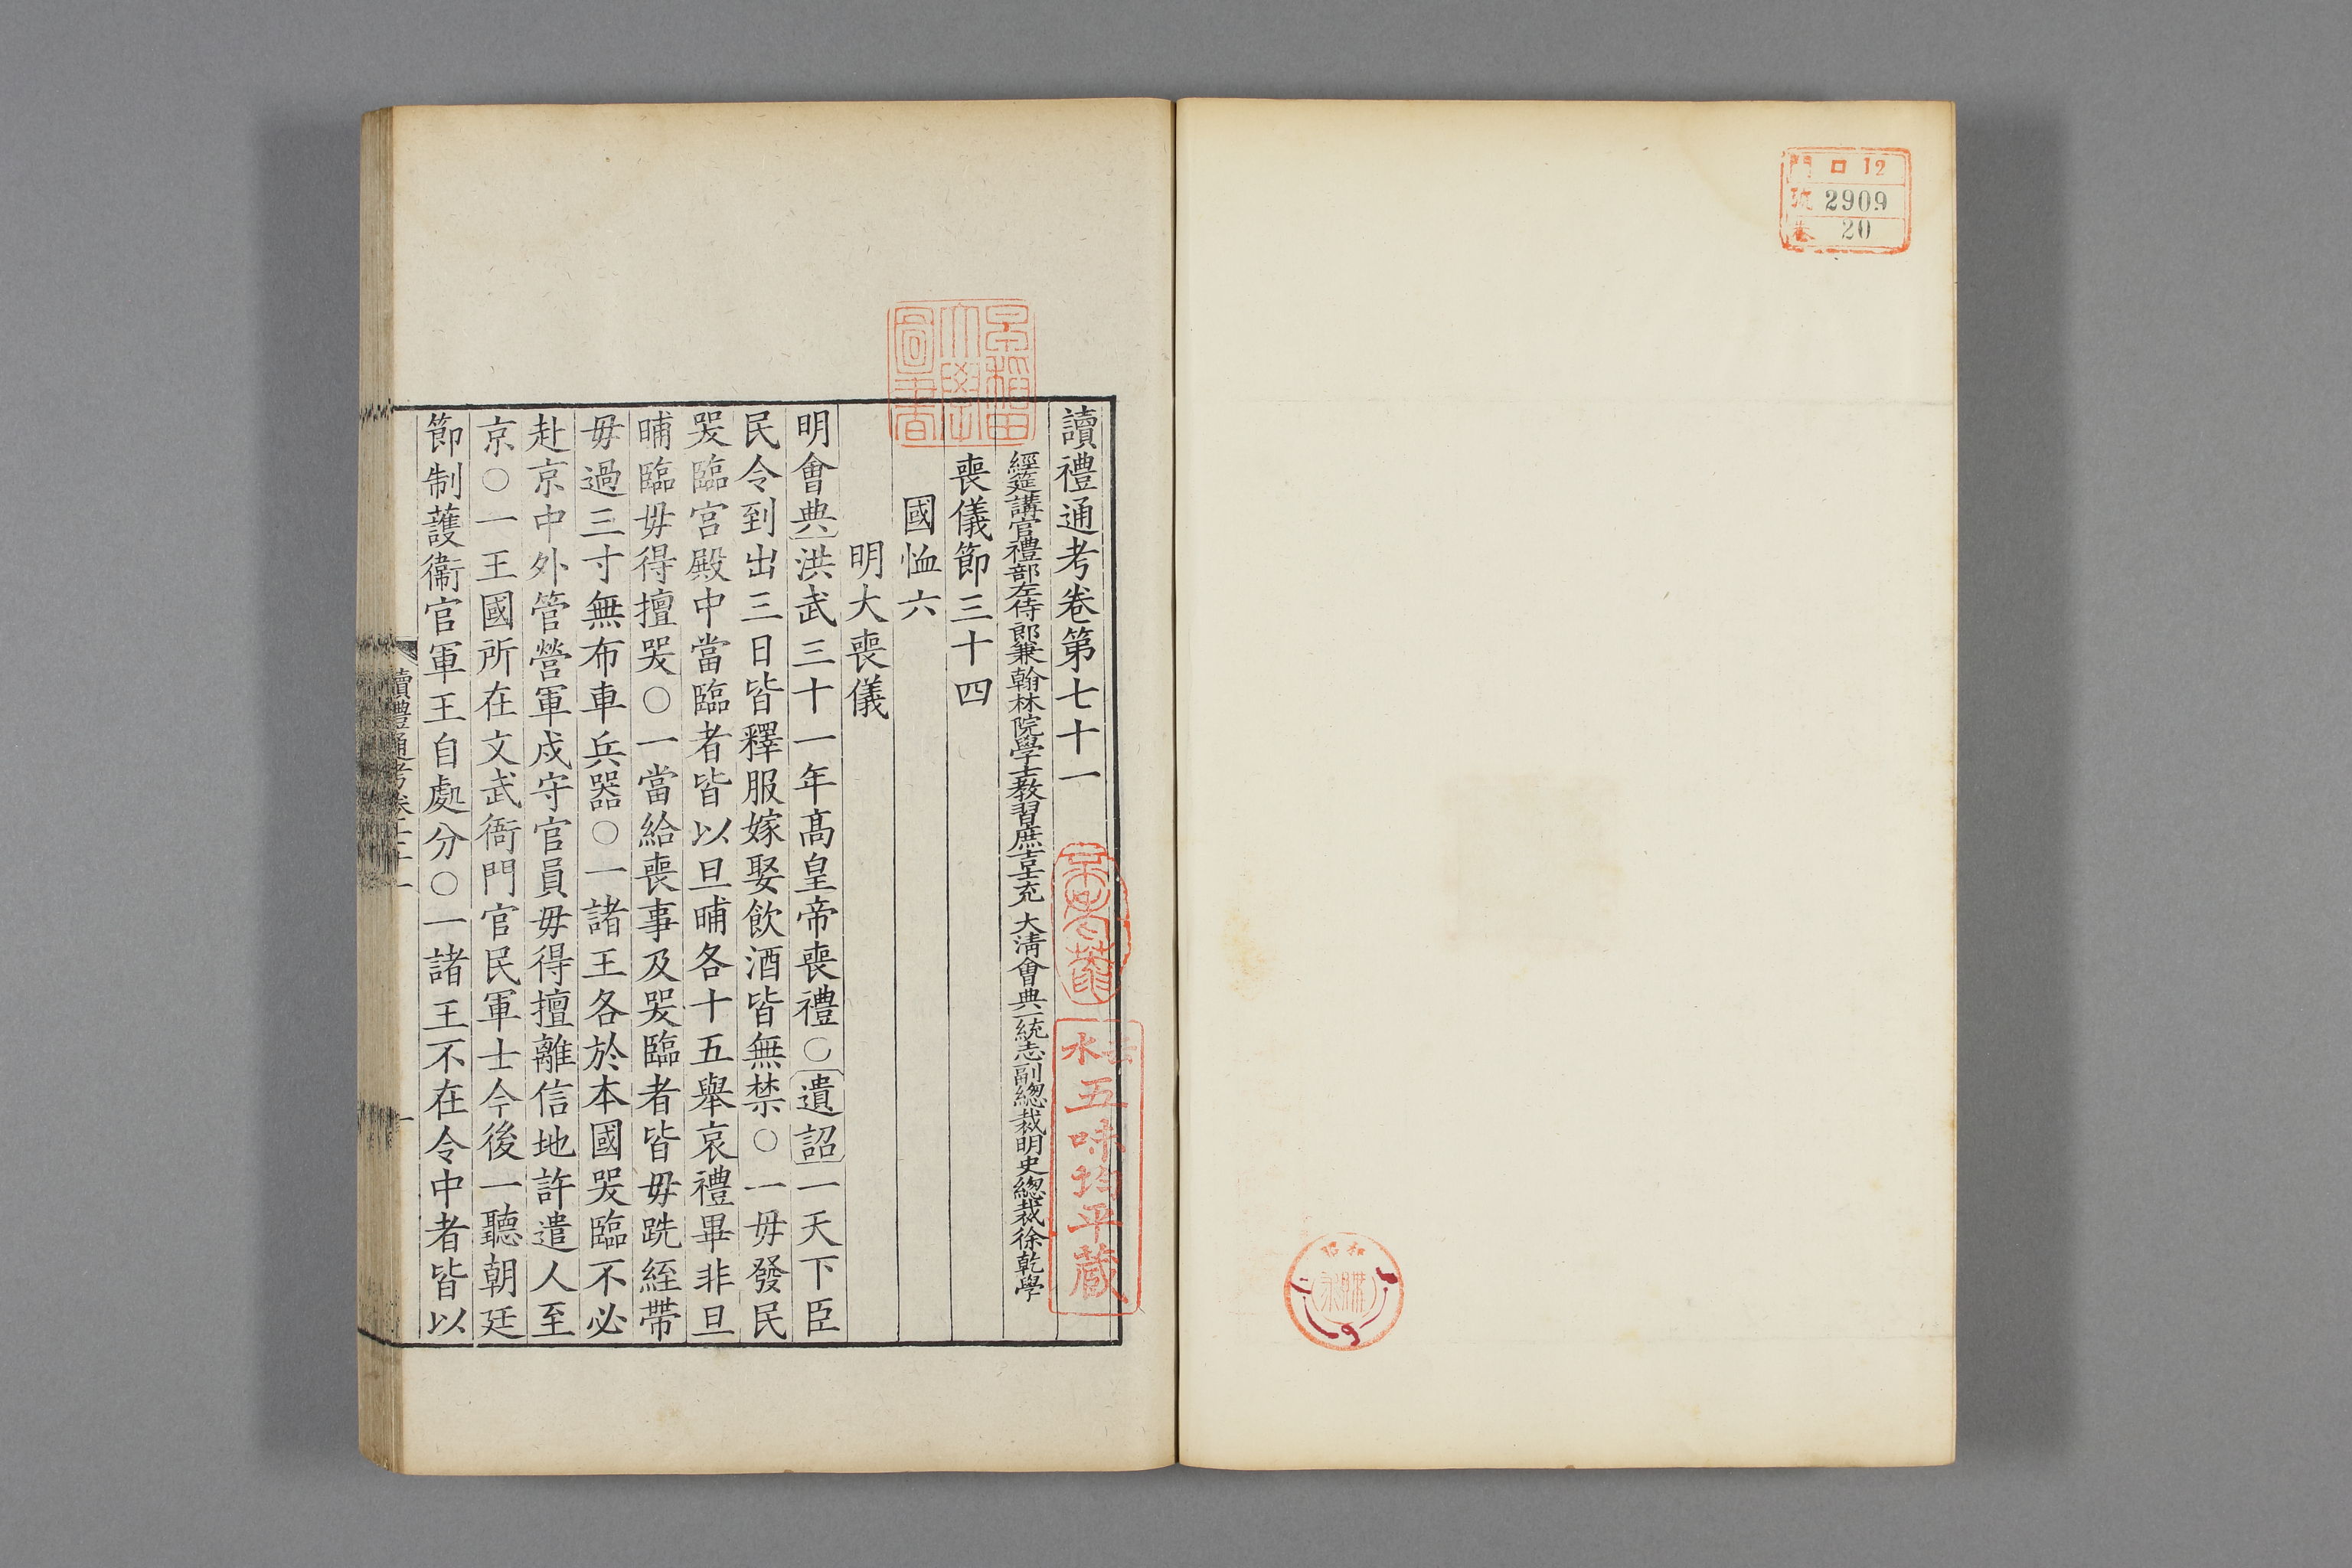 門 ロ 12
號 2909
卷 20
讀禮通考卷第七十一
經筵講官禮部左侍郎兼翰林院學士教習庶吉士充 大清會典一統志副總裁明史總裁徐乾學
喪儀節三十四
國恤六
明大喪儀
明會典洪武三十一年髙皇帝喪禮○遺詔一天下臣
民令到出三日皆釋服嫁娶飲酒皆無禁○一毋發民
哭臨宮殿中當臨者皆以旦晡各十五舉哀禮畢非旦
晡臨毋得擅哭○一當給喪事及哭臨者皆毋跣絰帶
毋過三寸無布車兵器○一諸王各於本國哭臨不必
赴京中外管營軍戍守官員毋得擅離信地許遣人至
京○一王國所在文武衙門官民軍士今後一聽朝廷
節制護衞官軍王自處分○一諸王不在令中者皆以
讀禮通考卷七十一
一
早稻田大學圖書
五味均平藏